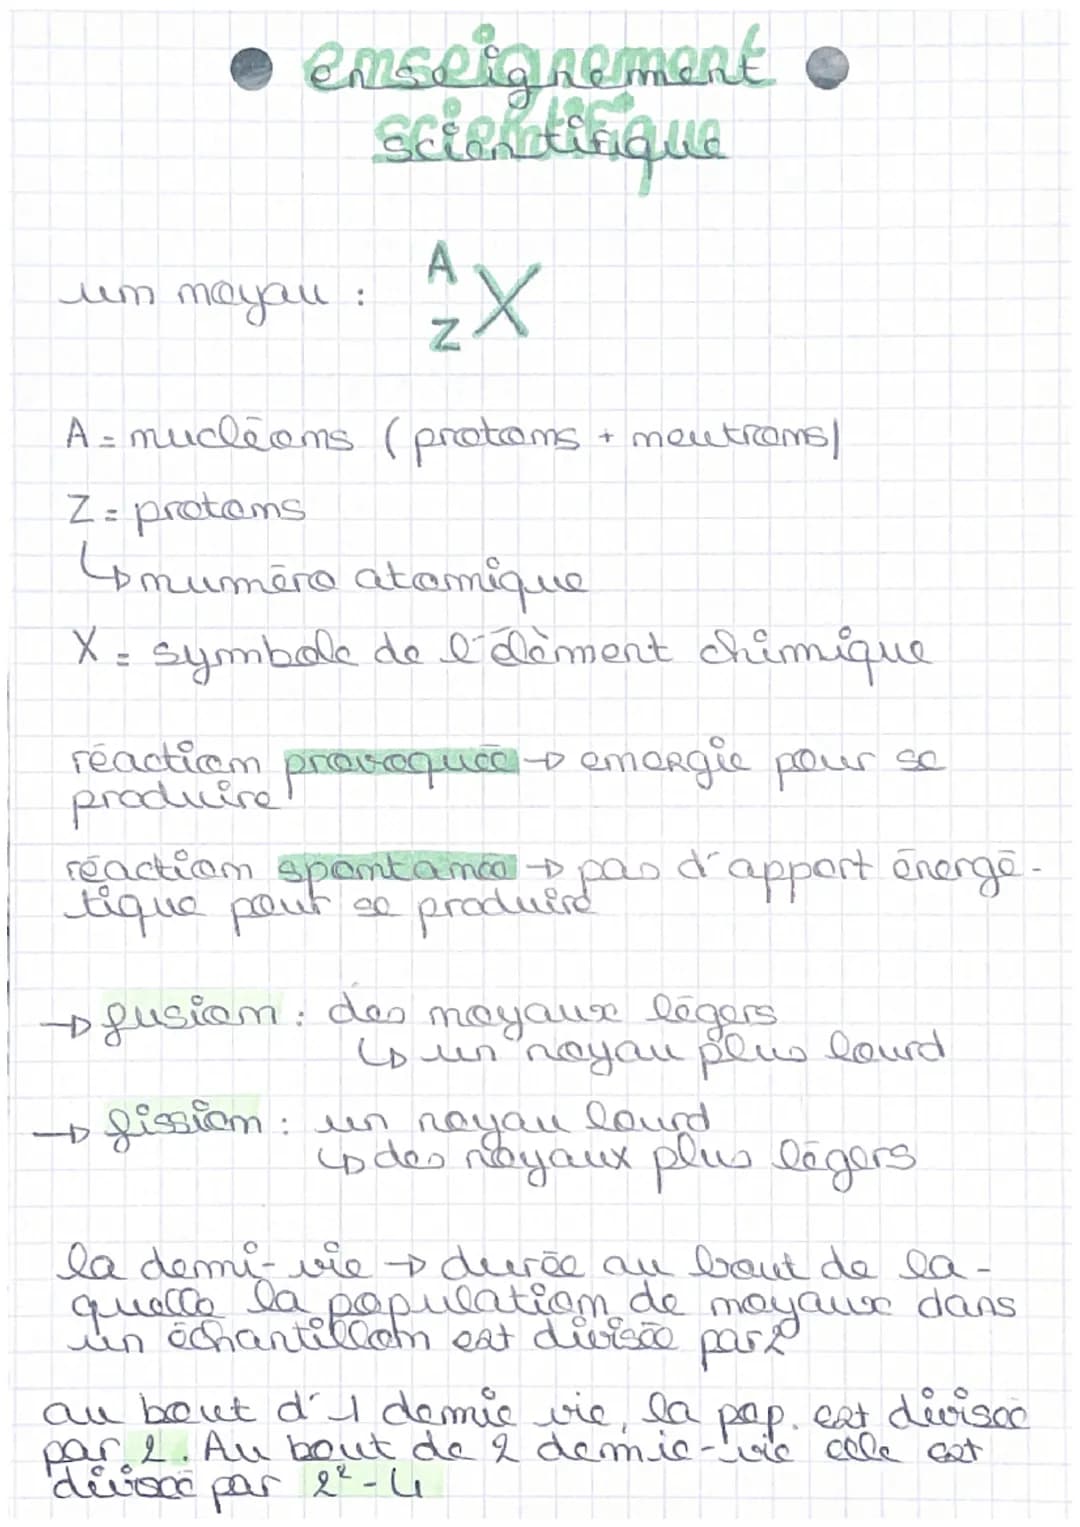 enseignement
scientifique
un noyau : A
X
Z
A = nucléons (protons + neutrons)
Z = protons
↳ numéro atomique
X = symbole de l'élèment chimique
réaction provoquée → energie pour se
produire
réaction spontanee → pas d'apport énergé-
tique pour se produire
→ fusion : des noyaux légers
↳ un noyau plus lourd
→ fission : un noyau lourd
↳ des noyaux plus légers
la demi-vie → durée au bout de la-
quelle la population de noyaux dans
un échantillon est divisée par 2
au bout d'1 demie vie, la pop. est divisée
par 2. Au bout de 2 demie-vie elle est
divisée par 2² - 4